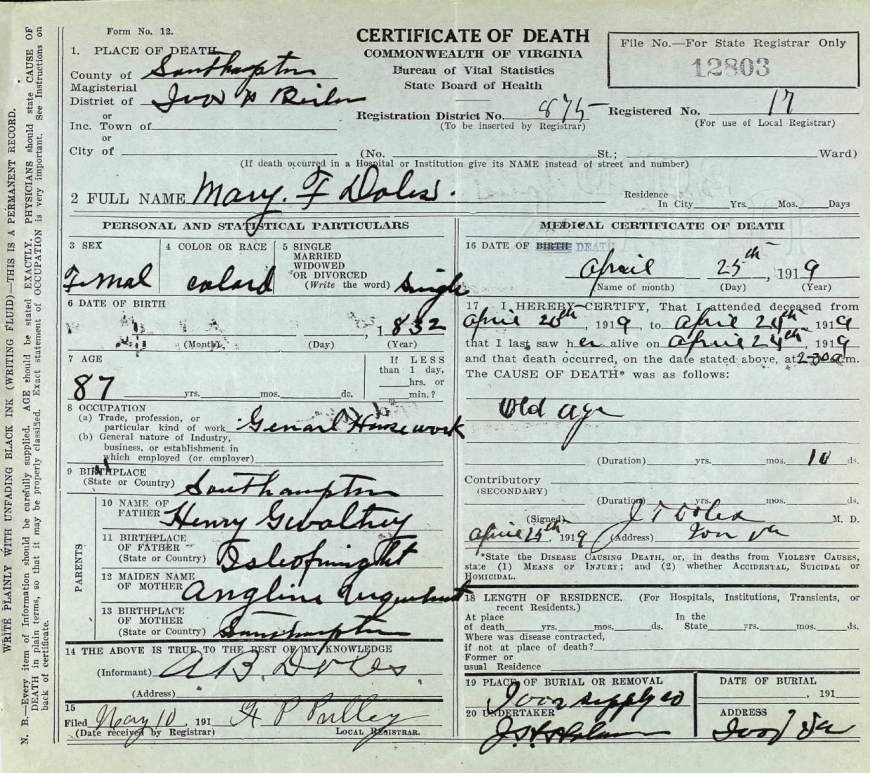 Form No. 12.
CERTIFICATE OF DEATH
COMMONWEALTH OF VIRGINIA
Bureau of Vital Statistics
State Board of Health
File No.—For State Registrar Only
12803
1. PLACE OF DEATH
County of Southampton
Magisterial
District of Ivor
or
Inc. Town of
or
City of
Registration District No. 875
(To be inserted by Registrar)
Registered No. 17
(For use of Local Registrar)
(No. St.; Ward)
(If death occurred in a Hospital or Institution give its NAME instead of street and number)
2 FULL NAME Mary. F Doles.
Residence
In City Yrs. Mos. Days
PERSONAL AND STATISTICAL PARTICULARS
3 SEX
Femal
4 COLOR OR RACE
colard
5 SINGLE
MARRIED
WIDOWED
OR DIVORCED
(Write the word) Single
6 DATE OF BIRTH
, 1832
(Month) (Day) (Year)
7 AGE
87 yrs. mos. ds.
If LESS
than 1 day,
hrs. or
min.?
8 OCCUPATION
(a) Trade, profession, or
particular kind of work Genarl Housework
(b) General nature of Industry,
business, or establishment in
which employed (or employer)
9 BIRTHPLACE
(State or Country) Southampton
PARENTS
10 NAME OF
FATHER Henry Gwaltney
11 BIRTHPLACE
OF FATHER
(State or Country) Isleofwight
12 MAIDEN NAME
OF MOTHER Angline
13 BIRTHPLACE
OF MOTHER
(State or Country) Southampton
14 THE ABOVE IS TRUE TO THE BEST OF MY KNOWLEDGE
(Informant) A B. Doles
(Address)
15
Filed May 10, 191 H P Pulley
(Date received by Registrar) LOCAL REGISTRAR.
MEDICAL CERTIFICATE OF DEATH
16 DATE OF BIRTH DEATH
April 25th, 1919
(Name of month) (Day) (Year)
17 I HEREBY CERTIFY, That I attended deceased from
April 20th, 1919, to April 24th, 1919
that I last saw her alive on April 24th, 1919
and that death occurred, on the date stated above, at m.
The CAUSE OF DEATH* was as follows:
Old age
(Duration) yrs. mos. 10 ds.
Contributory
(SECONDARY)
(Duration) yrs. mos. ds.
(Signed) J T Doles M. D.
April 25th 1919 (Address) Ivor Va
*State the DISEASE CAUSING DEATH, or, in deaths from VIOLENT CAUSES,
state (1) MEANS OF INJURY; and (2) whether ACCIDENTAL, SUICIDAL or
HOMICIDAL.
18 LENGTH OF RESIDENCE. (For Hospitals, Institutions, Transients, or
recent Residents.)
At place In the
of death yrs. mos. ds. State yrs. mos. ds.
Where was disease contracted,
if not at place of death?
Former or
usual Residence
19 PLACE OF BURIAL OR REMOVAL
Ivor supply co
DATE OF BURIAL
, 191
20 UNDERTAKER
ADDRESS
Ivor Va
WRITE PLAINLY WITH UNFADING BLACK INK (WRITING FLUID)—THIS IS A PERMANENT RECORD.
N. B.—Every item of information should be carefully supplied. AGE should be stated EXACTLY. PHYSICIANS should state CAUSE OF
DEATH in plain terms, so that it may be properly classified. Exact statement of OCCUPATION is very important. See Instructions on
back of certificate.